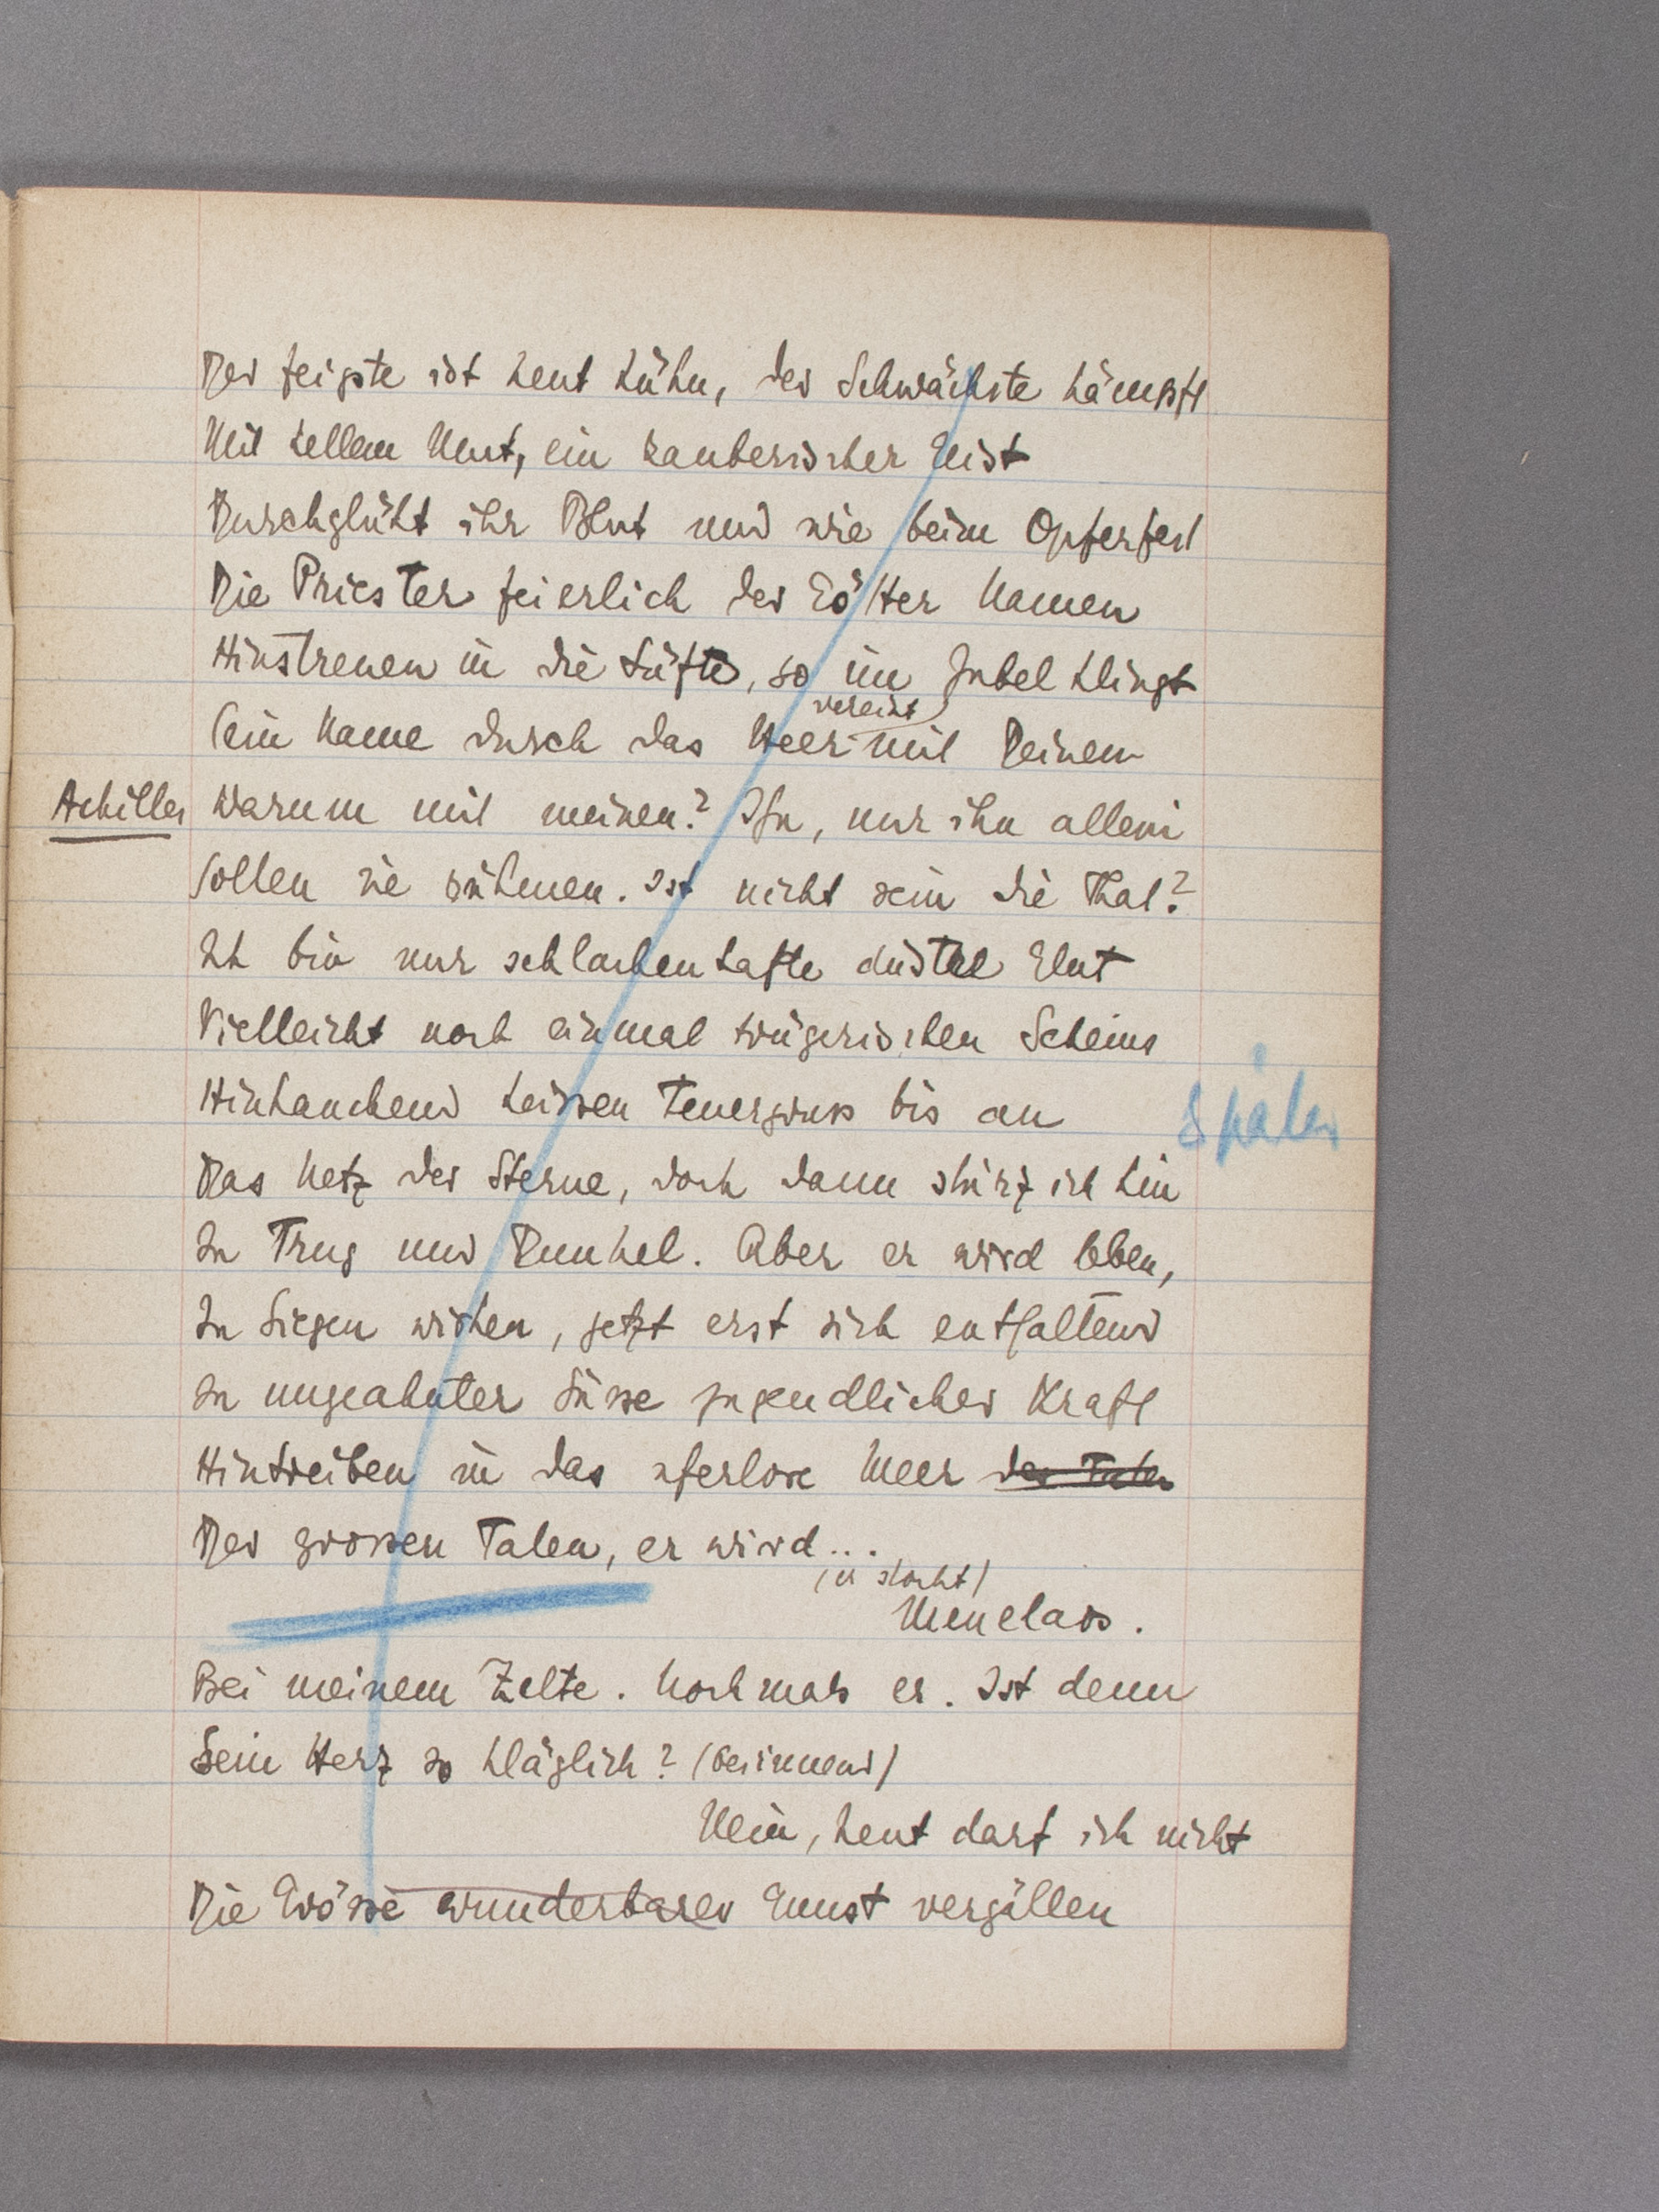 Der feigste ist heut kühn, der Schwächste kämpft
Mit hellem Mut, ein zauberischer Geist
Durchglüht ihr Blut und wie beim Opferfest
Die Priester feierlich der Götter Namen
Hinstreuen in die Lüfte, so im Jubel klingt
vereint
Sein Name durch das Heer mit Deinem
Achilles Warum mit meinen? Ihn, nur ihn allein
Sollen sie rühmen. Ist nicht sein die That?
Ich bin nur schlackenhafte düstre Glut
Vielleicht noch einmal trügerischen Scheins
Hinhauchend heissen Feuergruss bis an
Später
Das Netz der Sterne, doch dann stürz ich hin
In Trug und Dunkel. Aber er wird leben,
In Siegen wirken, jetzt erst sich entfaltend
In ungeahnter Süsse jugendlicher Kraft
Hintreiben in das uferlose Meer der Taten
Der grossen Taten, er wird...
(er stockt)
Menelaos.
Bei meinem Zelte. Nochmals er. Ist denn
Sein Herz so kläglich? (besinnend)
Nein, heut darf ich nicht
Die Grösse wunderbarer Gunst vergällen